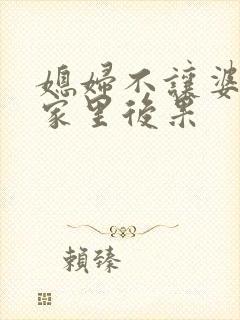 媳婦不讓婆
家里後果
賴臻